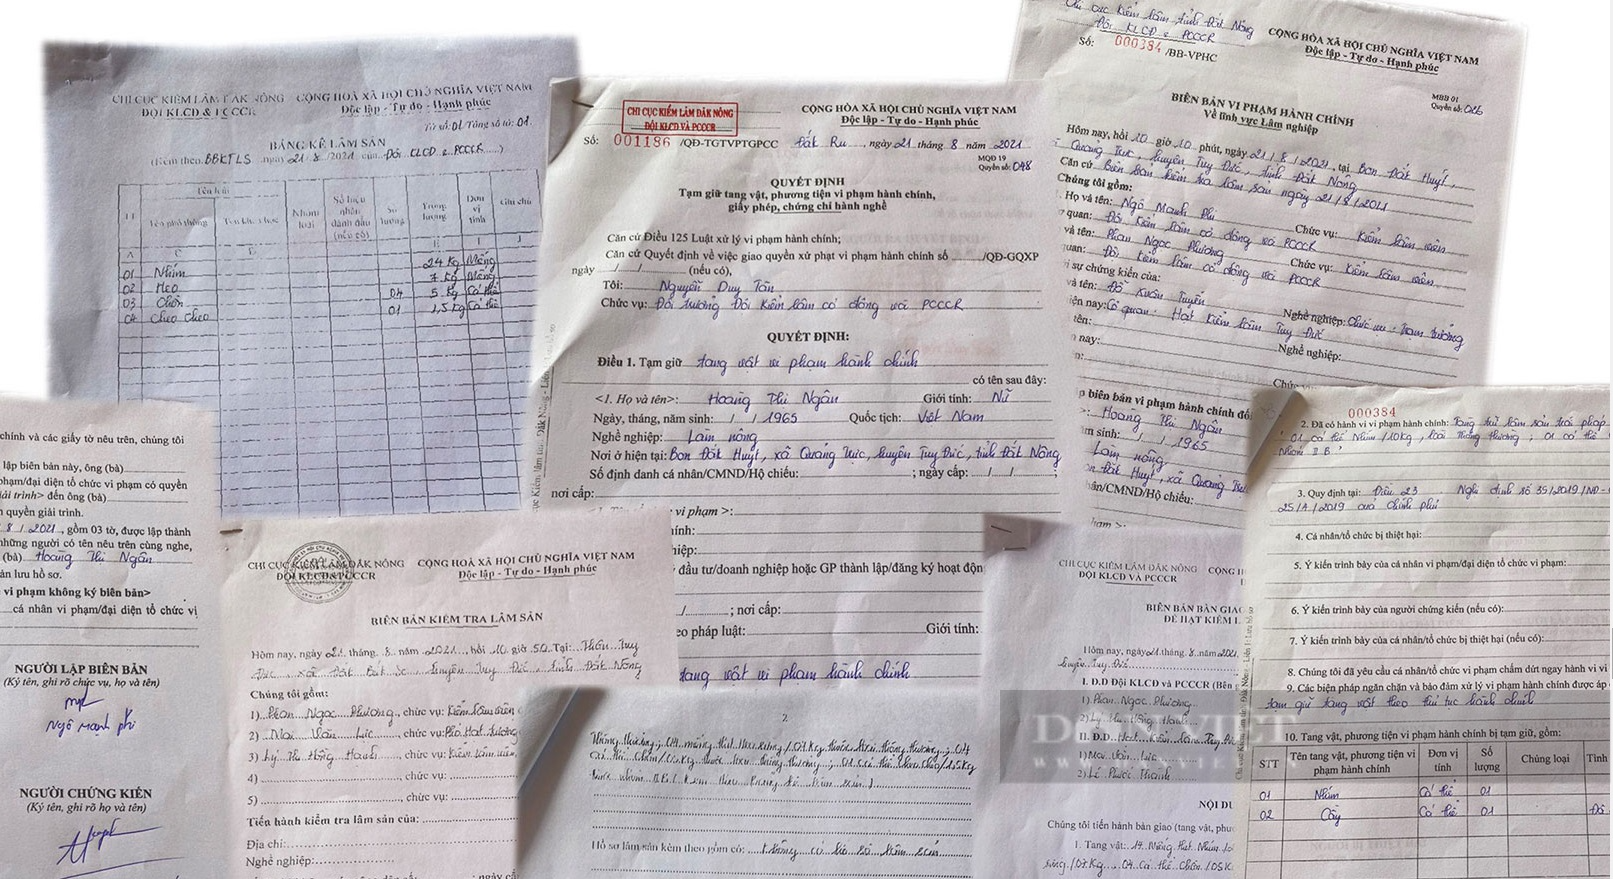 CHI CỤC KIỂM LÂM ĐĂK NÔNG
ĐỘI KLCĐ & PCCCR
CỘNG HOÀ XÃ HỘI CHỦ NGHĨA VIỆT NAM
Độc lập - Tự do - Hạnh phúc
Tờ số: 01/Tổng số tờ: 01.
BẢNG KÊ LÂM SẢN
(Kèm theo BBKTLS ngày 21/8/2021 của Đội KLCĐ & PCCCR)
TT
Tên phổ thông
Tên khoa học
Nhóm loại
Số hiệu nhãn đánh dấu (nếu có)
Số lượng
Trọng lượng
Đơn vị tính
Ghi chú
01 Nhím 24 kg Miếng
02 Heo 7 kg Miếng
03 Chồn 04 5 kg Cá thể
04 Cheo Cheo 01 1,5 kg Cá thể
CHI CỤC KIỂM LÂM ĐĂK NÔNG
ĐỘI KLCĐ VÀ PCCCR
CỘNG HÒA XÃ HỘI CHỦ NGHĨA VIỆT NAM
Độc lập - Tự do - Hạnh phúc
Số: 001186 /QĐ-TGTVPTGPCC
Đắk Ru, ngày 21 tháng 8 năm 2021
MQĐ 19
Quyển số: 048
QUYẾT ĐỊNH
Tạm giữ tang vật, phương tiện vi phạm hành chính,
giấy phép, chứng chỉ hành nghề
Căn cứ Điều 125 Luật xử lý vi phạm hành chính;
Căn cứ Quyết định về việc giao quyền xử phạt vi phạm hành chính số ....../QĐ-GQXP
ngày / / (nếu có),
Tôi: Nguyễn Duy Tân
Chức vụ: Đội trưởng Đội Kiểm lâm cơ động và PCCCR
QUYẾT ĐỊNH:
Điều 1. Tạm giữ tang vật vi phạm hành chính
có tên sau đây:
<1. Họ và tên>: Hoàng Thị Ngân Giới tính: Nữ
Ngày, tháng, năm sinh: / / 1965 Quốc tịch: Việt Nam
Nghề nghiệp: Làm nông
Nơi ở hiện tại: Bon Đắk Huýt, xã Quảng Trực, huyện Tuy Đức, tỉnh Đắk Nông
Số định danh cá nhân/CMND/Hộ chiếu: ; ngày cấp: / / ;
nơi cấp:
vi phạm >:
chính:
hiệp:
đầu tư/doanh nghiệp hoặc GP thành lập/đăng ký hoạt độn
/ ; nơi cấp:
eo pháp luật: Giới tính:
tang vật vi phạm hành chính
Chi cục Kiểm lâm tỉnh Đắk Nông
Đội KLCĐ & PCCCR
Số: 000384 /BB-VPHC
CỘNG HÒA XÃ HỘI CHỦ NGHĨA VIỆT NAM
Độc lập - Tự do - Hạnh phúc
MBB 01
Quyển số: 016
BIÊN BẢN VI PHẠM HÀNH CHÍNH
Về lĩnh vực Lâm nghiệp
Hôm nay, hồi 20 giờ 10 phút, ngày 21/8/2021, tại Bon Đắk Huýt,
Quảng Trực, huyện Tuy Đức, tỉnh Đắk Nông
Căn cứ Biên bản kiểm tra lâm sản ngày 21/8/2021
Chúng tôi gồm:
Họ và tên: Ngô Mạnh Phi Chức vụ: Kiểm lâm viên
quan: Đội Kiểm lâm cơ động và PCCCR
và tên: Phan Ngọc Phương Chức vụ: Kiểm lâm viên
quan: Đội kiểm lâm cơ động và PCCCR
sự chứng kiến của:
và tên: Đỗ Xuân Tuyên Nghề nghiệp: Chức vụ: Trạm trưởng
iện nay: Cơ quan: Hạt Kiểm lâm Tuy Đức
tên: Nghề nghiệp:
n nay:
Chức
p biên bản vi phạm hành chính đối
>: Hoàng Thị Ngân
m sinh: / / 1965
Làm nông
Bon Đắk Huýt, xã Quảng Trực
hân/CMND/Hộ chiếu:
hạm >:
000384
2. Đã có hành vi vi phạm hành chính: Tàng trữ lâm sản trái pháp
01 cá thể Nhím /10kg, loài thông thường; 01 cá thể
Nhóm IIB
3. Quy định tại: Điều 23 Nghị định số 35/2019/NĐ-
25/4/2019 của chính phủ
4. Cá nhân/tổ chức bị thiệt hại:
5. Ý kiến trình bày của cá nhân vi phạm/đại diện tổ chức vi phạm:
6. Ý kiến trình bày của người chứng kiến (nếu có):
7. Ý kiến trình bày của cá nhân/tổ chức bị thiệt hại (nếu có):
8. Chúng tôi đã yêu cầu cá nhân/tổ chức vi phạm chấm dứt ngay hành vi vi
9. Các biện pháp ngăn chặn và bảo đảm xử lý vi phạm hành chính được áp
tạm giữ tang vật theo thủ tục hành chính
10. Tang vật, phương tiện vi phạm hành chính bị tạm giữ, gồm:
STT
Tên tang vật, phương tiện vi phạm hành chính
Đơn vị tính
Số lượng
Chủng loại
Tình
01 Nhím Cá thể 01
02 Cầy Cá thể 01
chính và các giấy tờ nêu trên, chúng tôi
lập biên bản này, ông (bà)
phạm/đại diện tổ chức vi phạm có quyền
iải trình> đến ông (bà)
n quyền giải trình.
8 / 2021, gồm 03 tờ, được lập thành
những người có tên nêu trên cùng nghe,
(bà) Hoàng Thị Ngân
ản lưu hồ sơ.
vi phạm không ký biên bản>
cá nhân vi phạm/đại diện tổ chức vi
NGƯỜI LẬP BIÊN BẢN
(Ký tên, ghi rõ chức vụ, họ và tên)
Ngô Mạnh Phi
NGƯỜI CHỨNG KIẾN
(Ký tên, ghi rõ họ và tên)
CHI CỤC KIỂM LÂM ĐĂK NÔNG
ĐỘI KLCĐ&PCCCR
CỘNG HOÀ XÃ HỘI CHỦ NGHĨA VIỆT NAM
Độc lập - Tự do - Hạnh phúc
BIÊN BẢN KIỂM TRA LÂM SẢN
Hôm nay, ngày 21 tháng 8 năm 2021, hồi 10 giờ 50. Tại: Thôn Tuy
Đức, xã Đắk Búk So, huyện Tuy Đức, tỉnh Đắk Nông
Chúng tôi gồm:
1) Phan Ngọc Phương, chức vụ: Kiểm lâm viên
2) Mai Văn Lực, chức vụ: Phó Hạt trưởng
3) Lý Thị Hồng Hạnh, chức vụ: Kiểm lâm viên
4) , chức vụ:
5) , chức vụ:
Tiến hành kiểm tra lâm sản của:
Địa chỉ:
Nghề nghiệp:
2
thông thường; 04 miếng thịt heo rừng/07kg thuộc loài thông thường; 04
cá thể chồn/05kg thuộc loài thông thường; 01 cá thể cheo cheo/1,5kg
Hồ sơ lâm sản kèm theo gồm có: không có hồ sơ lâm sản
CHI CỤC KIỂM LÂM ĐĂK NÔNG
ĐỘI KLCĐ VÀ PCCCR
CỘNG H
BIÊN BẢN BÀN GIAO
ĐỂ HẠT KIỂM L
Hôm nay, ngày 21 tháng 8 năm 2021,
huyện Tuy Đức
I. Đ.D Đội KLCĐ và PCCCR (Bên
1) Phan Ngọc Phương
2) Lý Thị Hồng Hạnh
II. Đ.D Hạt Kiểm lâm Tuy Đức
1) Mai Văn Lực
2) Lê Phước Thành
NỘI DU
Chúng tôi tiến hành bàn giao (tang vật, phươ
1. Tang vật: 14 Miếng thịt Nhím/
rừng/07kg 04 cá thể Chồn/05K
DANVIET